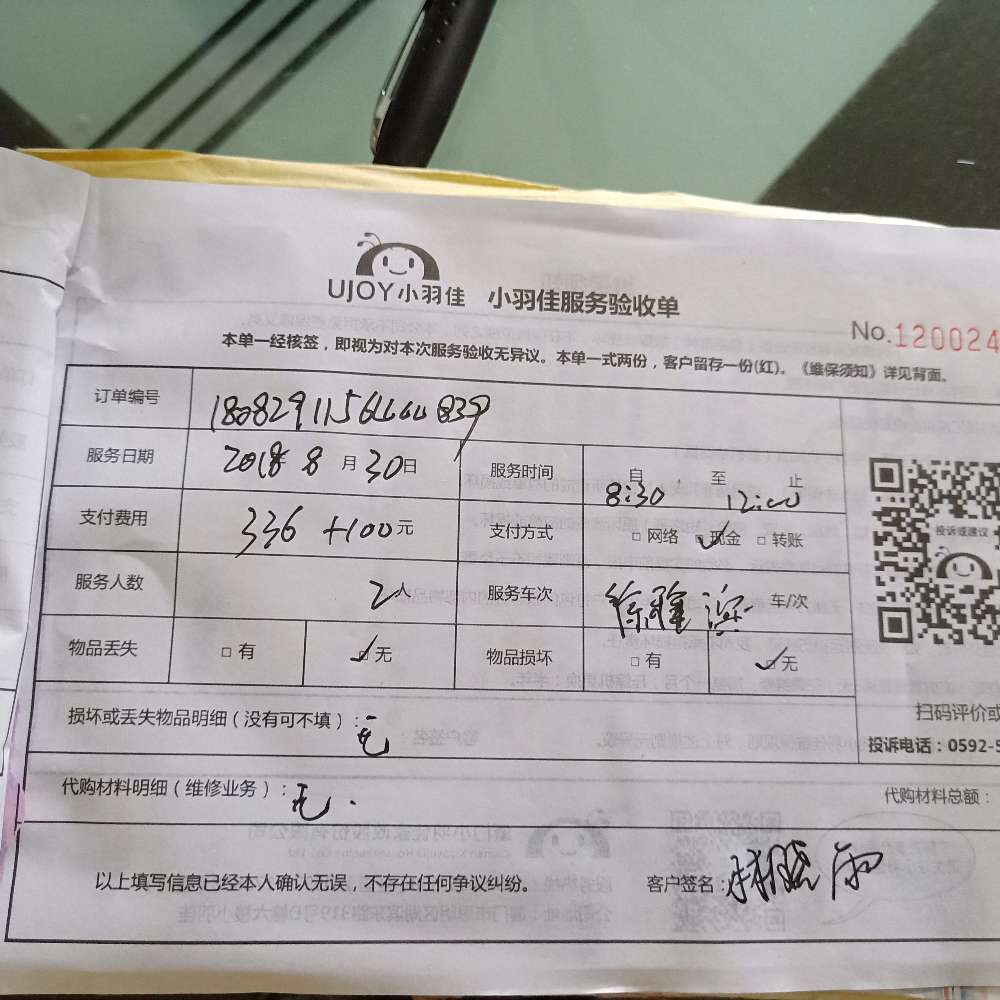 UJOY小羽佳 小羽佳服务验收单
No.120024
本单一经核签，即视为对本次服务验收无异议。本单一式两份，客户留存一份(红)。《维保须知》详见背面。
订单编号
服务日期 2018年8月30日 服务时间 自8:30，至12:00止
支付费用 336+100元 支付方式 □网络 ☑现金 □转账
服务人数 2人 服务车次 车/次
物品丢失 □有 ☑无 物品损坏 □有 ☑无
损坏或丢失物品明细（没有可不填）：无
扫码评价或
投诉或建议
投诉电话：0592-5
代购材料明细（维修业务）：无.
代购材料总额：
以上填写信息已经本人确认无误，不存在任何争议纠纷。 客户签名：林晓雨